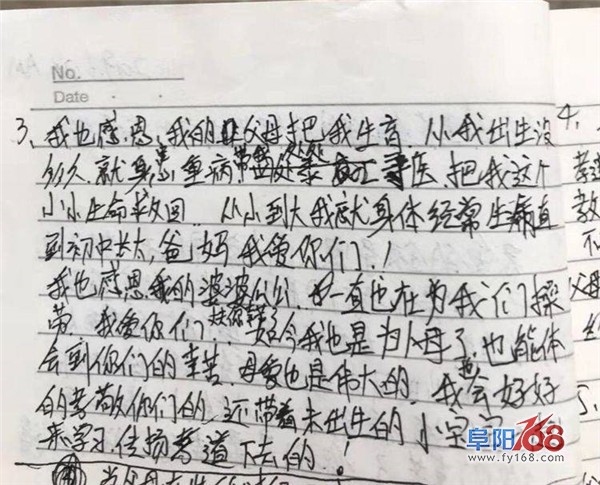 No.
Date
3、我也感恩、我的父母把我生育.小我出生没 4、
多久、就身患重病带 处求 寻医、把我这个
小小生命救回.从小到大我就身体经常生病直
教
到初中长大,爸妈我爱你们!
不
我也感恩我的婆婆公公.一直也在为我们操
父母
带 我爱你们.. 如今我也是为人母了,也能体
会到你们的辛苦.母爱也是伟大的.我会好好
的孝敬你们的.还带着未出生的小宝
来学习传扬孝道下去的.!
阜阳168
www.fy168.com